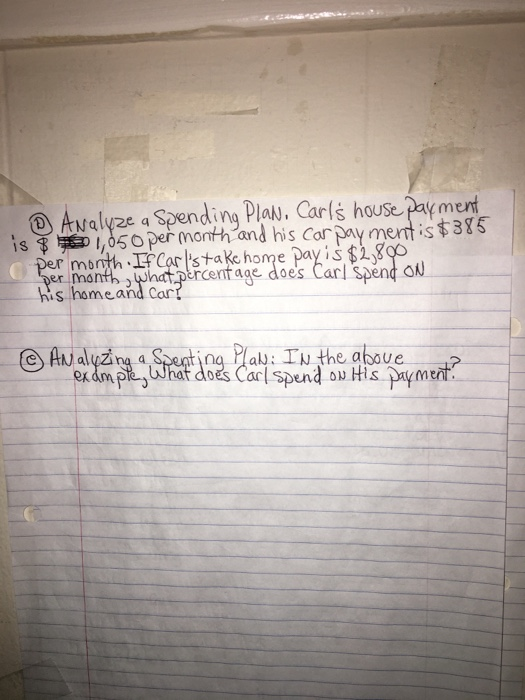 Ⓓ Analyze a Spending Plan. Carl's house payment
is $ 1,050 per month and his car payment is $385
per month. If Carl's take home pay is $2,800
per month, what percentage does Carl spend on
his home and car?
Ⓔ Analyzing a Spenting Plan: In the above
example, What does Carl spend on His payment?